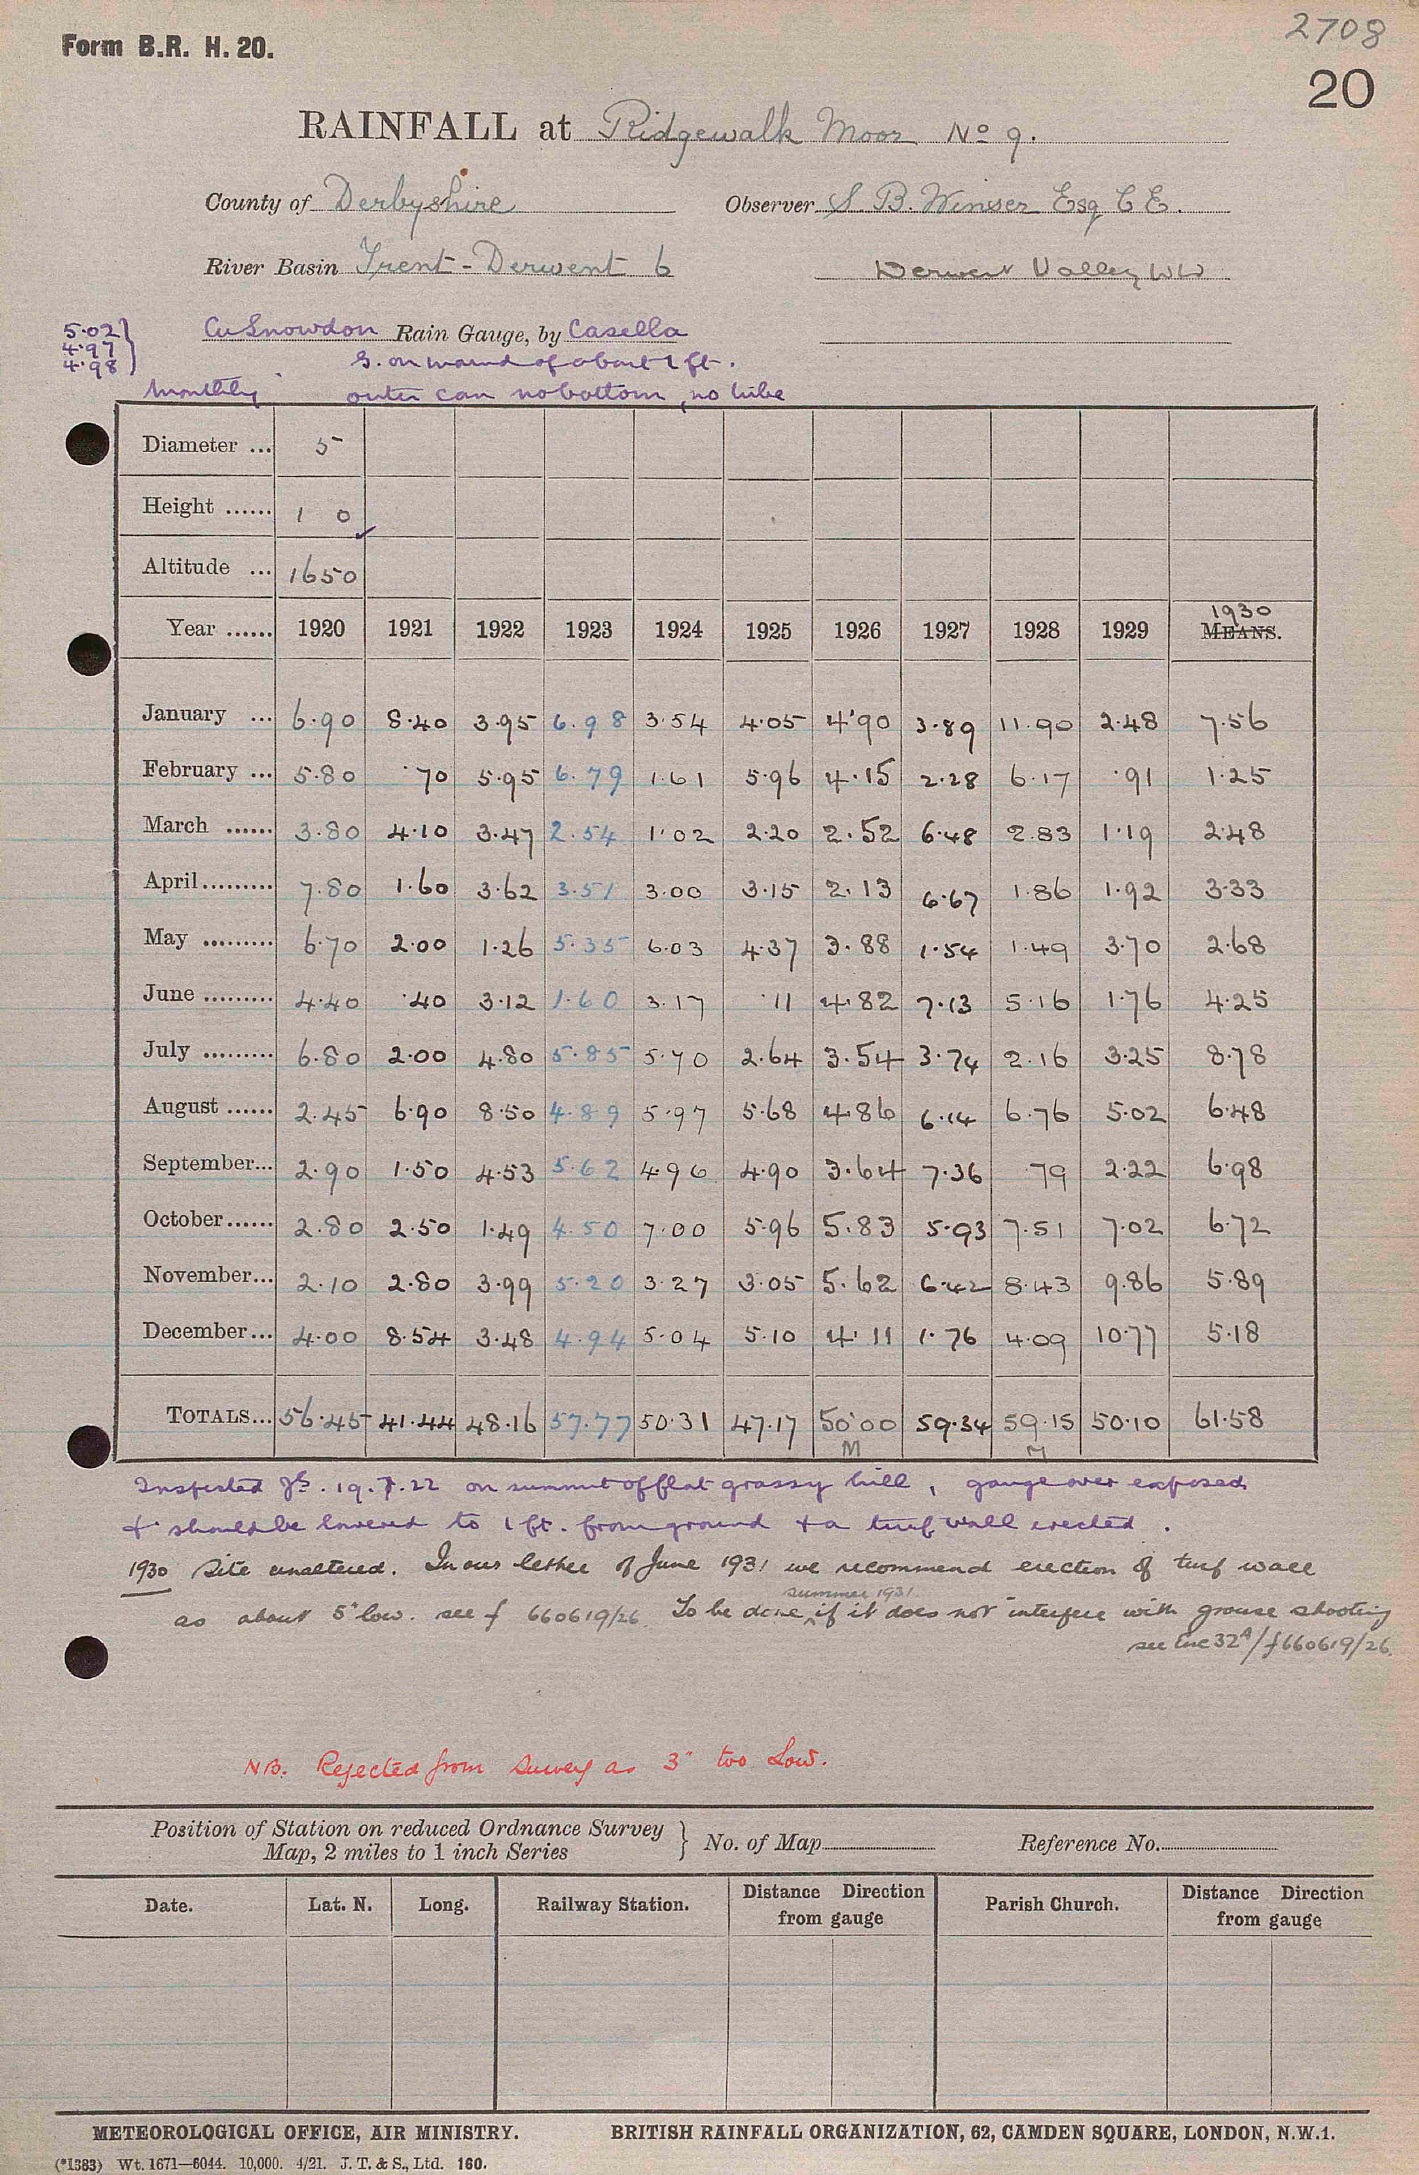 2708
Form B.R. H. 20.
20
RAINFALL at Ridgewalk Moor No 9.
County of Derbyshire Observer S. B. Winser Esq C E.
River Basin Trent - Derwent 6 Derwent Valley WW
5.02
4.97
4.98
Cu Snowdon Rain Gauge, by Casella
G. on mound of about 1 ft.
Monthly outer can no bottom, no tube
Diameter ... 5
Height ...... 1 0
Altitude ... 1650
Year ...... 1920 1921 1922 1923 1924 1925 1926 1927 1928 1929 1930 MEANS.
January ... 6.90 8.40 3.95 6.98 3.54 4.05 4.90 3.89 11.90 2.48 7.56
February ... 5.80 .70 5.95 6.79 1.61 5.96 4.15 2.28 6.17 .91 1.25
March ...... 3.80 4.10 3.47 2.54 1.02 2.20 2.52 6.48 2.83 1.19 2.48
April......... 7.80 1.60 3.62 3.51 3.00 3.15 2.13 6.67 1.86 1.92 3.33
May ......... 6.70 2.00 1.26 5.35 6.03 4.37 3.88 1.54 1.49 3.70 2.68
June ......... 4.40 .40 3.12 1.60 3.17 .11 4.82 7.13 5.16 1.76 4.25
July ......... 6.80 2.00 4.80 5.85 5.70 2.64 3.54 3.74 2.16 3.25 8.78
August ...... 2.45 6.90 8.50 4.89 5.97 5.68 4.86 6.14 6.76 5.02 6.48
September... 2.90 1.50 4.53 5.62 4.96 4.90 3.64 7.36 .79 2.22 6.98
October...... 2.80 2.50 1.49 4.50 7.00 5.96 5.83 5.93 7.51 7.02 6.72
November... 2.10 2.80 3.99 5.20 3.27 3.05 5.62 6.42 8.43 9.86 5.89
December... 4.00 8.54 3.48 4.94 5.04 5.10 4.11 1.76 4.09 10.77 5.18
TOTALS... 56.45 41.44 48.16 57.77 50.31 47.17 50.00 59.34 59.15 50.10 61.58
M M
Inspected . 19.7.22 on summit of flat grassy hill, gauge over exposed
& should be lowered to 1 ft. from ground & a turf wall erected.
1930 Site unaltered. In our letter of June 1931 we recommend erection of turf wall
summer 1931
as about 5" low. see f 660619/26. To be done if it does not interfere with grouse shooting
see Enc 32A/f660619/26.
NB. Rejected from Survey as 3" too Low.
Position of Station on reduced Ordnance Survey
Map, 2 miles to 1 inch Series } No. of Map Reference No.
Date. Lat. N. Long. Railway Station. Distance Direction from gauge Parish Church. Distance Direction from gauge
METEOROLOGICAL OFFICE, AIR MINISTRY. BRITISH RAINFALL ORGANIZATION, 62, CAMDEN SQUARE, LONDON, N.W.1.
(*1383) Wt. 1671—6044. 10,000. 4/21. J. T. & S., Ltd. 160.